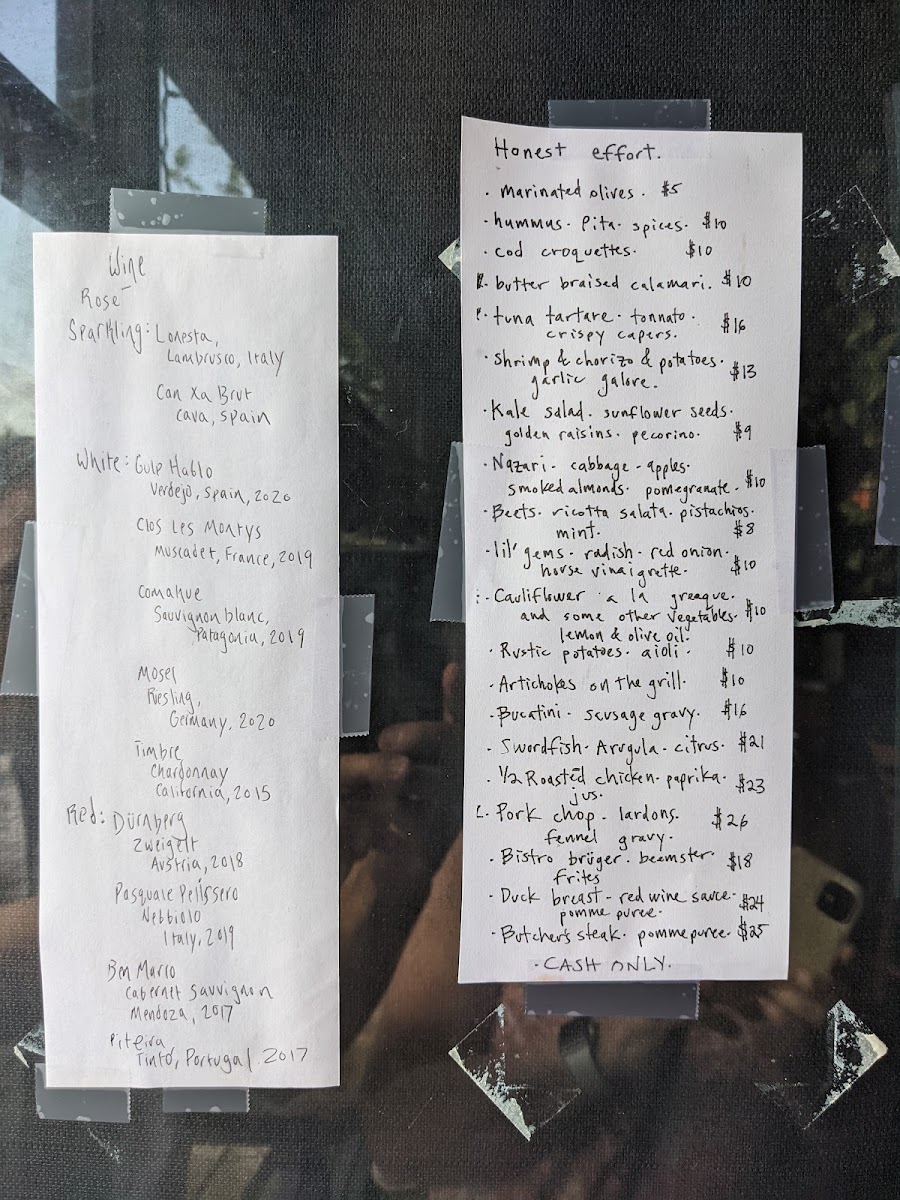 Wine
Rosé
Sparkling: Lonesta,
Lambrusco, Italy
Can Xa Brut
Cava, Spain
White: Gulp Hablo
Verdejo, Spain, 2020
Clos Les Montys
Muscadet, France, 2019
Comahue
Sauvignon blanc,
Patagonia, 2019
Mosel
Riesling,
Germany, 2020
Timbre
Chardonnay
California, 2015
Red: Dürnberg
Zweigelt
Austria, 2018
Pasquale Pelissero
Nebbiolo
Italy, 2019
Ben Marco
Cabernet Sauvignon
Mendoza, 2017
Piteira
Tinto, Portugal 2017
Honest effort.
· Marinated olives. $5
· hummus. Pita. spices. $10
· cod croquettes. $10
butter braised calamari. $10
tuna tartare. tonnato.
crispy capers. $16
· Shrimp & chorizo & potatoes.
garlic galore. $13
· Kale salad. sunflower seeds.
golden raisins. pecorino. $9
· Nazari. cabbage - apples.
smoked almonds. pomegranate. $10
· Beets. ricotta salata. pistachios.
mint. $8
· lil' gems. radish. red onion.
house vinaigrette. $10
· Cauliflower a la greaque.
and some other vegetables. $10
lemon & olive oil.
· Rustic potatoes. aioli. $10
· Artichokes on the grill. $10
· Bucatini. sausage gravy. $16
· Swordfish. Arugula. citrus. $21
· 1/2 Roasted chicken. paprika.
jus. $23
Pork chop. lardons.
fennel gravy. $26
· Bistro brüger. beemster. $18
frites
· Duck breast - red wine sauce. $24
pomme puree.
· Butcher's steak. pomme puree. $25
· CASH ONLY.